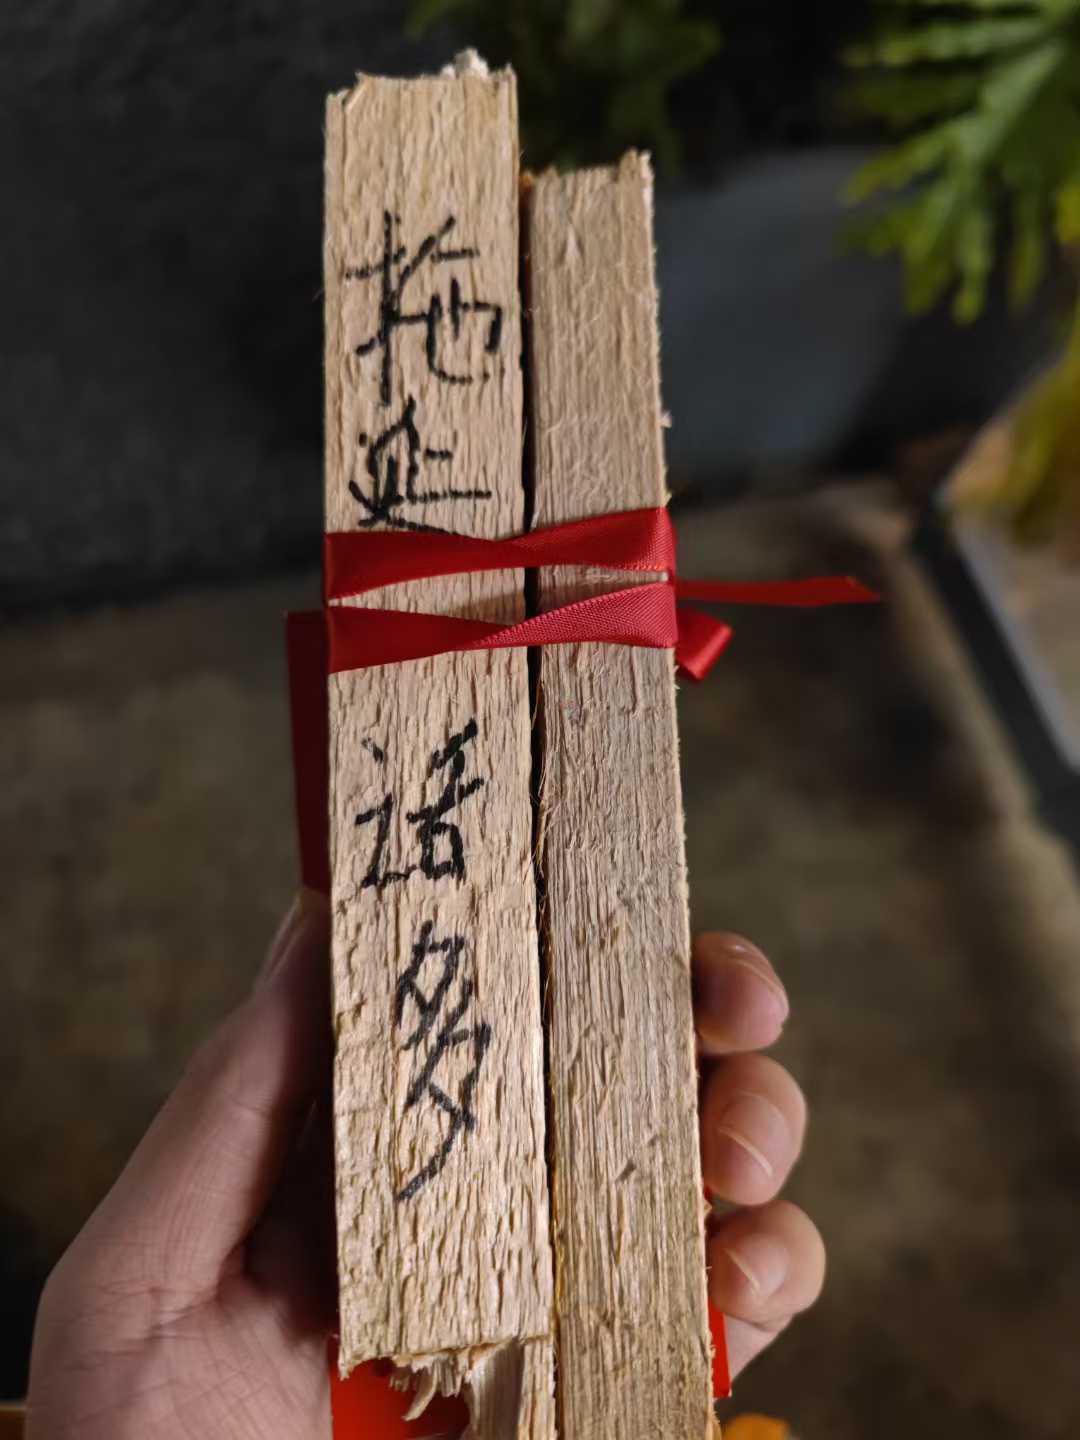 拖延
话多